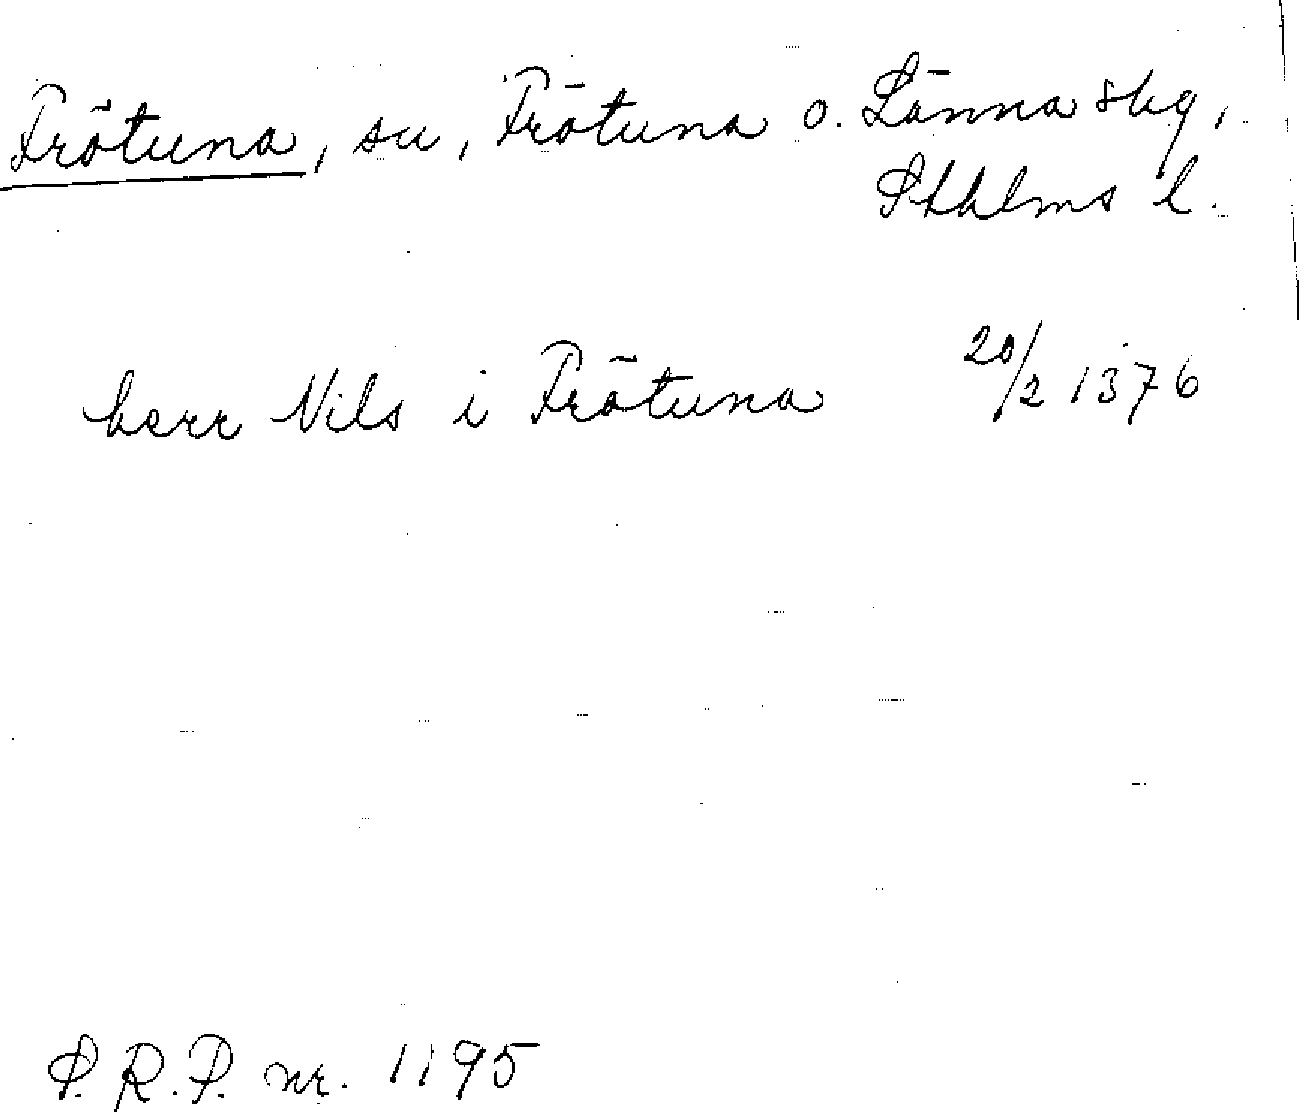 Frötuna, sn, Frötuna o. Länna skg,
Sthlms l.
herr Nils i Frötuna 20/2 1376
S.R.P. nr. 1195